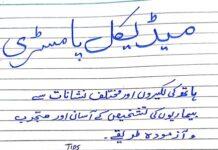 میڈیکل پامسٹری
ہاتھ کی لکیروں اور مختلف نشانات سے
بیماریوں کی تشخیص کے آسان اور مجرب
و آزمودہ طریقے۔
Tips